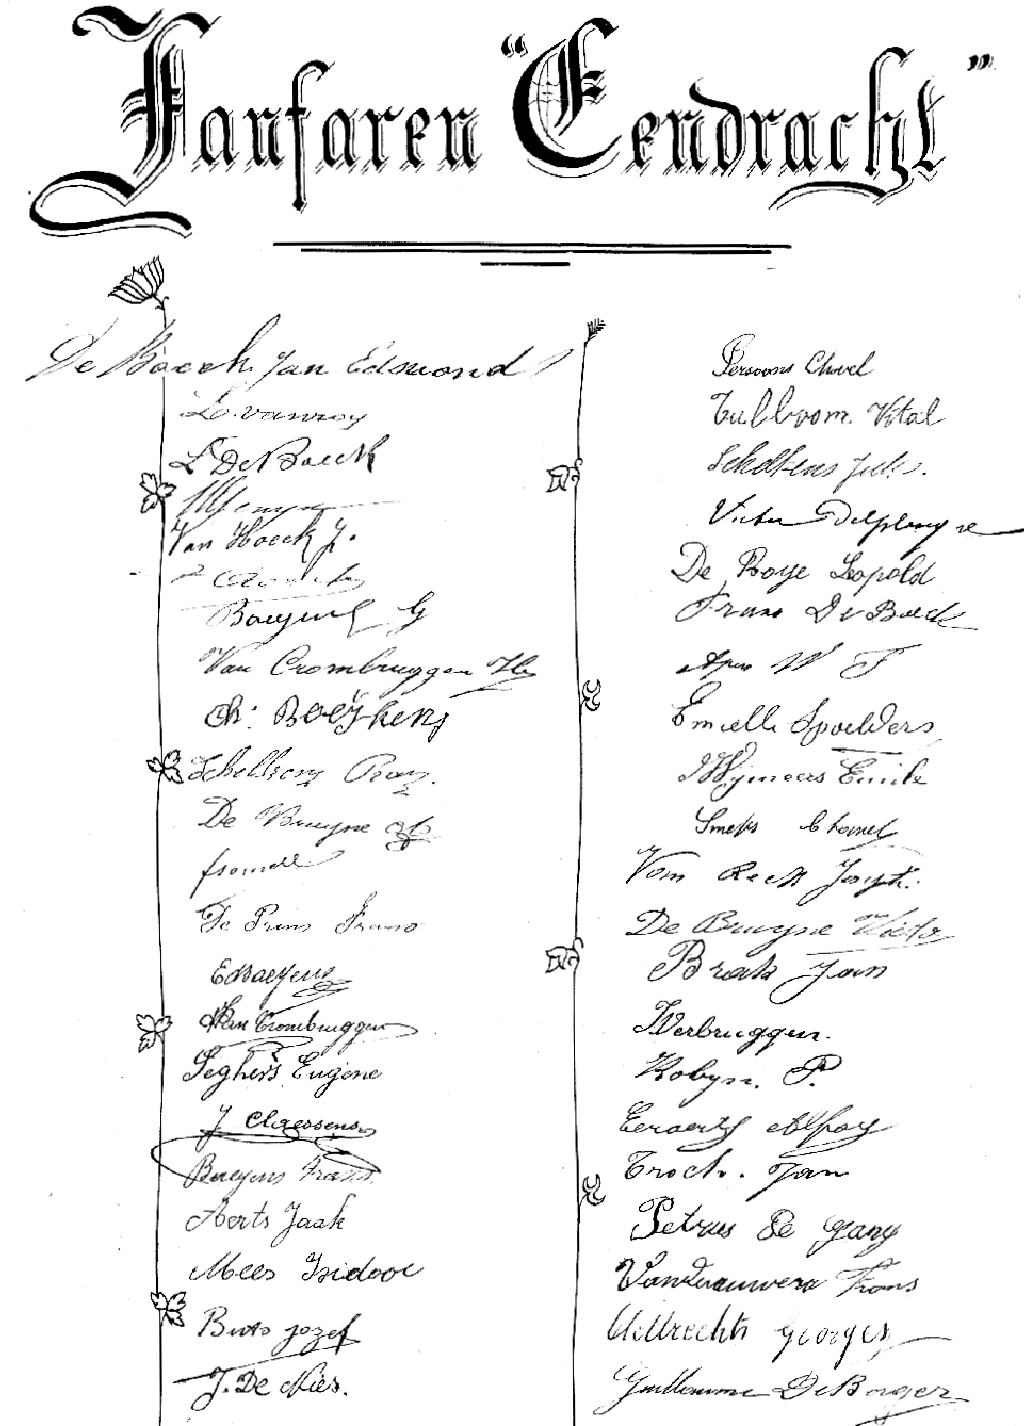 Fanfaren "Eendracht"
De Boeck Jan Edmond
L. Vanroy
L De Boeck
Van Hoeck J.
Boeyens G
Van Crombruggen
Ch. Boeykens
Schellens
De Bruyne
De Prins Frans
E Baeyens
Van Crombruggen
Seghers Eugene
J Claessens
Baeyens Frans
Aerts Jaak
Mees Isidoor
Buts Jozef
J. De Nies.
Persoons Charel
Tulleboom Vital
Scholtens Jules.
Victor Delplanque
De Roye Leopold
Frans De Boeck
W F
Emielle Spoelders
Wymeers Emile
Smets Charel
Van Jozef.
De Bruyne Victor
Brock Jan
Verbruggen.
Robyn. P.
Eeraerts Alfons
Troch. Jan
Petrus De
Vandrauwera Frans
Uelbrechts Georges
Guillaume De Borger